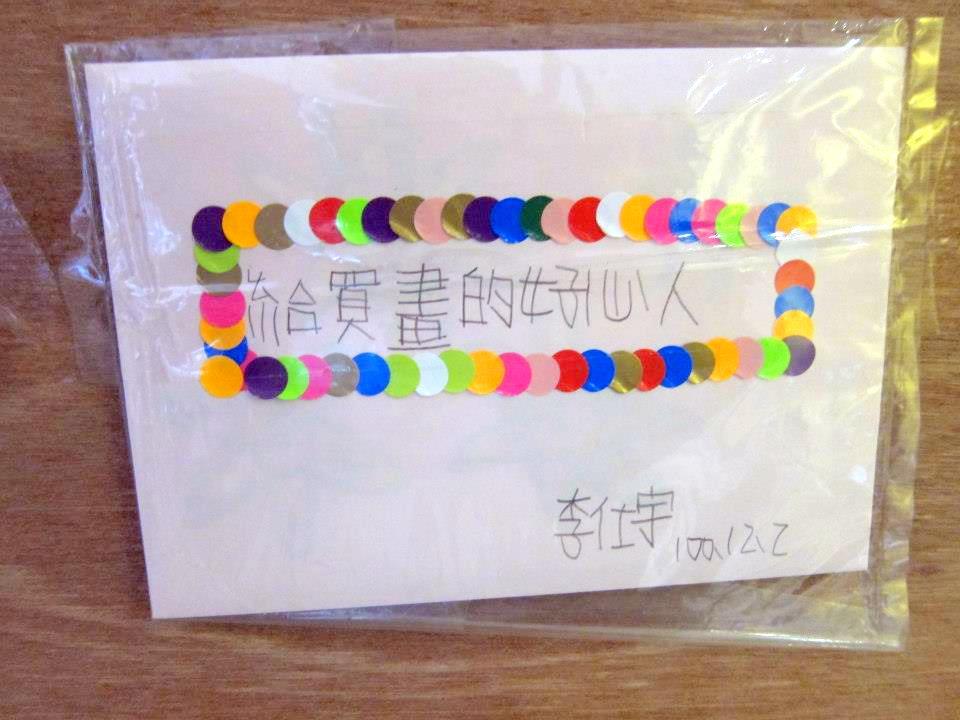 給買畫的好心人
李仕宇 100.12.2